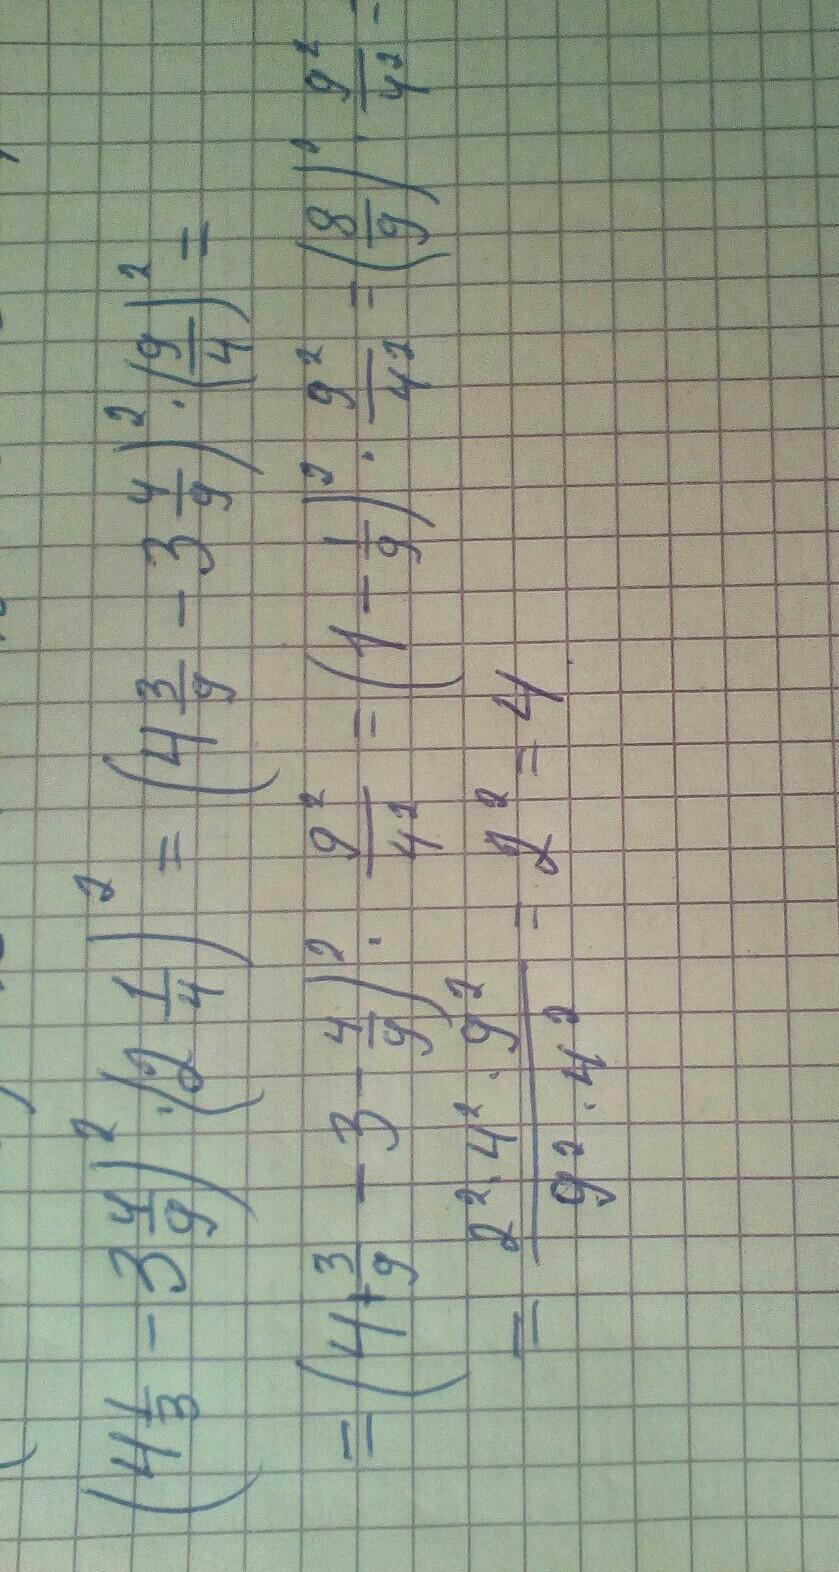 (4 1/3 - 3 4/9)² · (2 1/4)² = (4 3/9 - 3 4/9)² · (9/4)² =
= (4 + 3/9 - 3 - 4/9)² · 9²/4² = (1 - 1/9)² · 9²/4² = (8/9)² · 9²/4² =
= 2² · 4² · 9² / 9² · 4² = 2² = 4